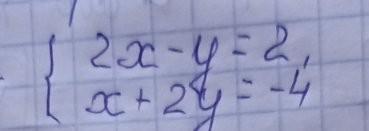 2x - y = 2,
x + 2y = -4